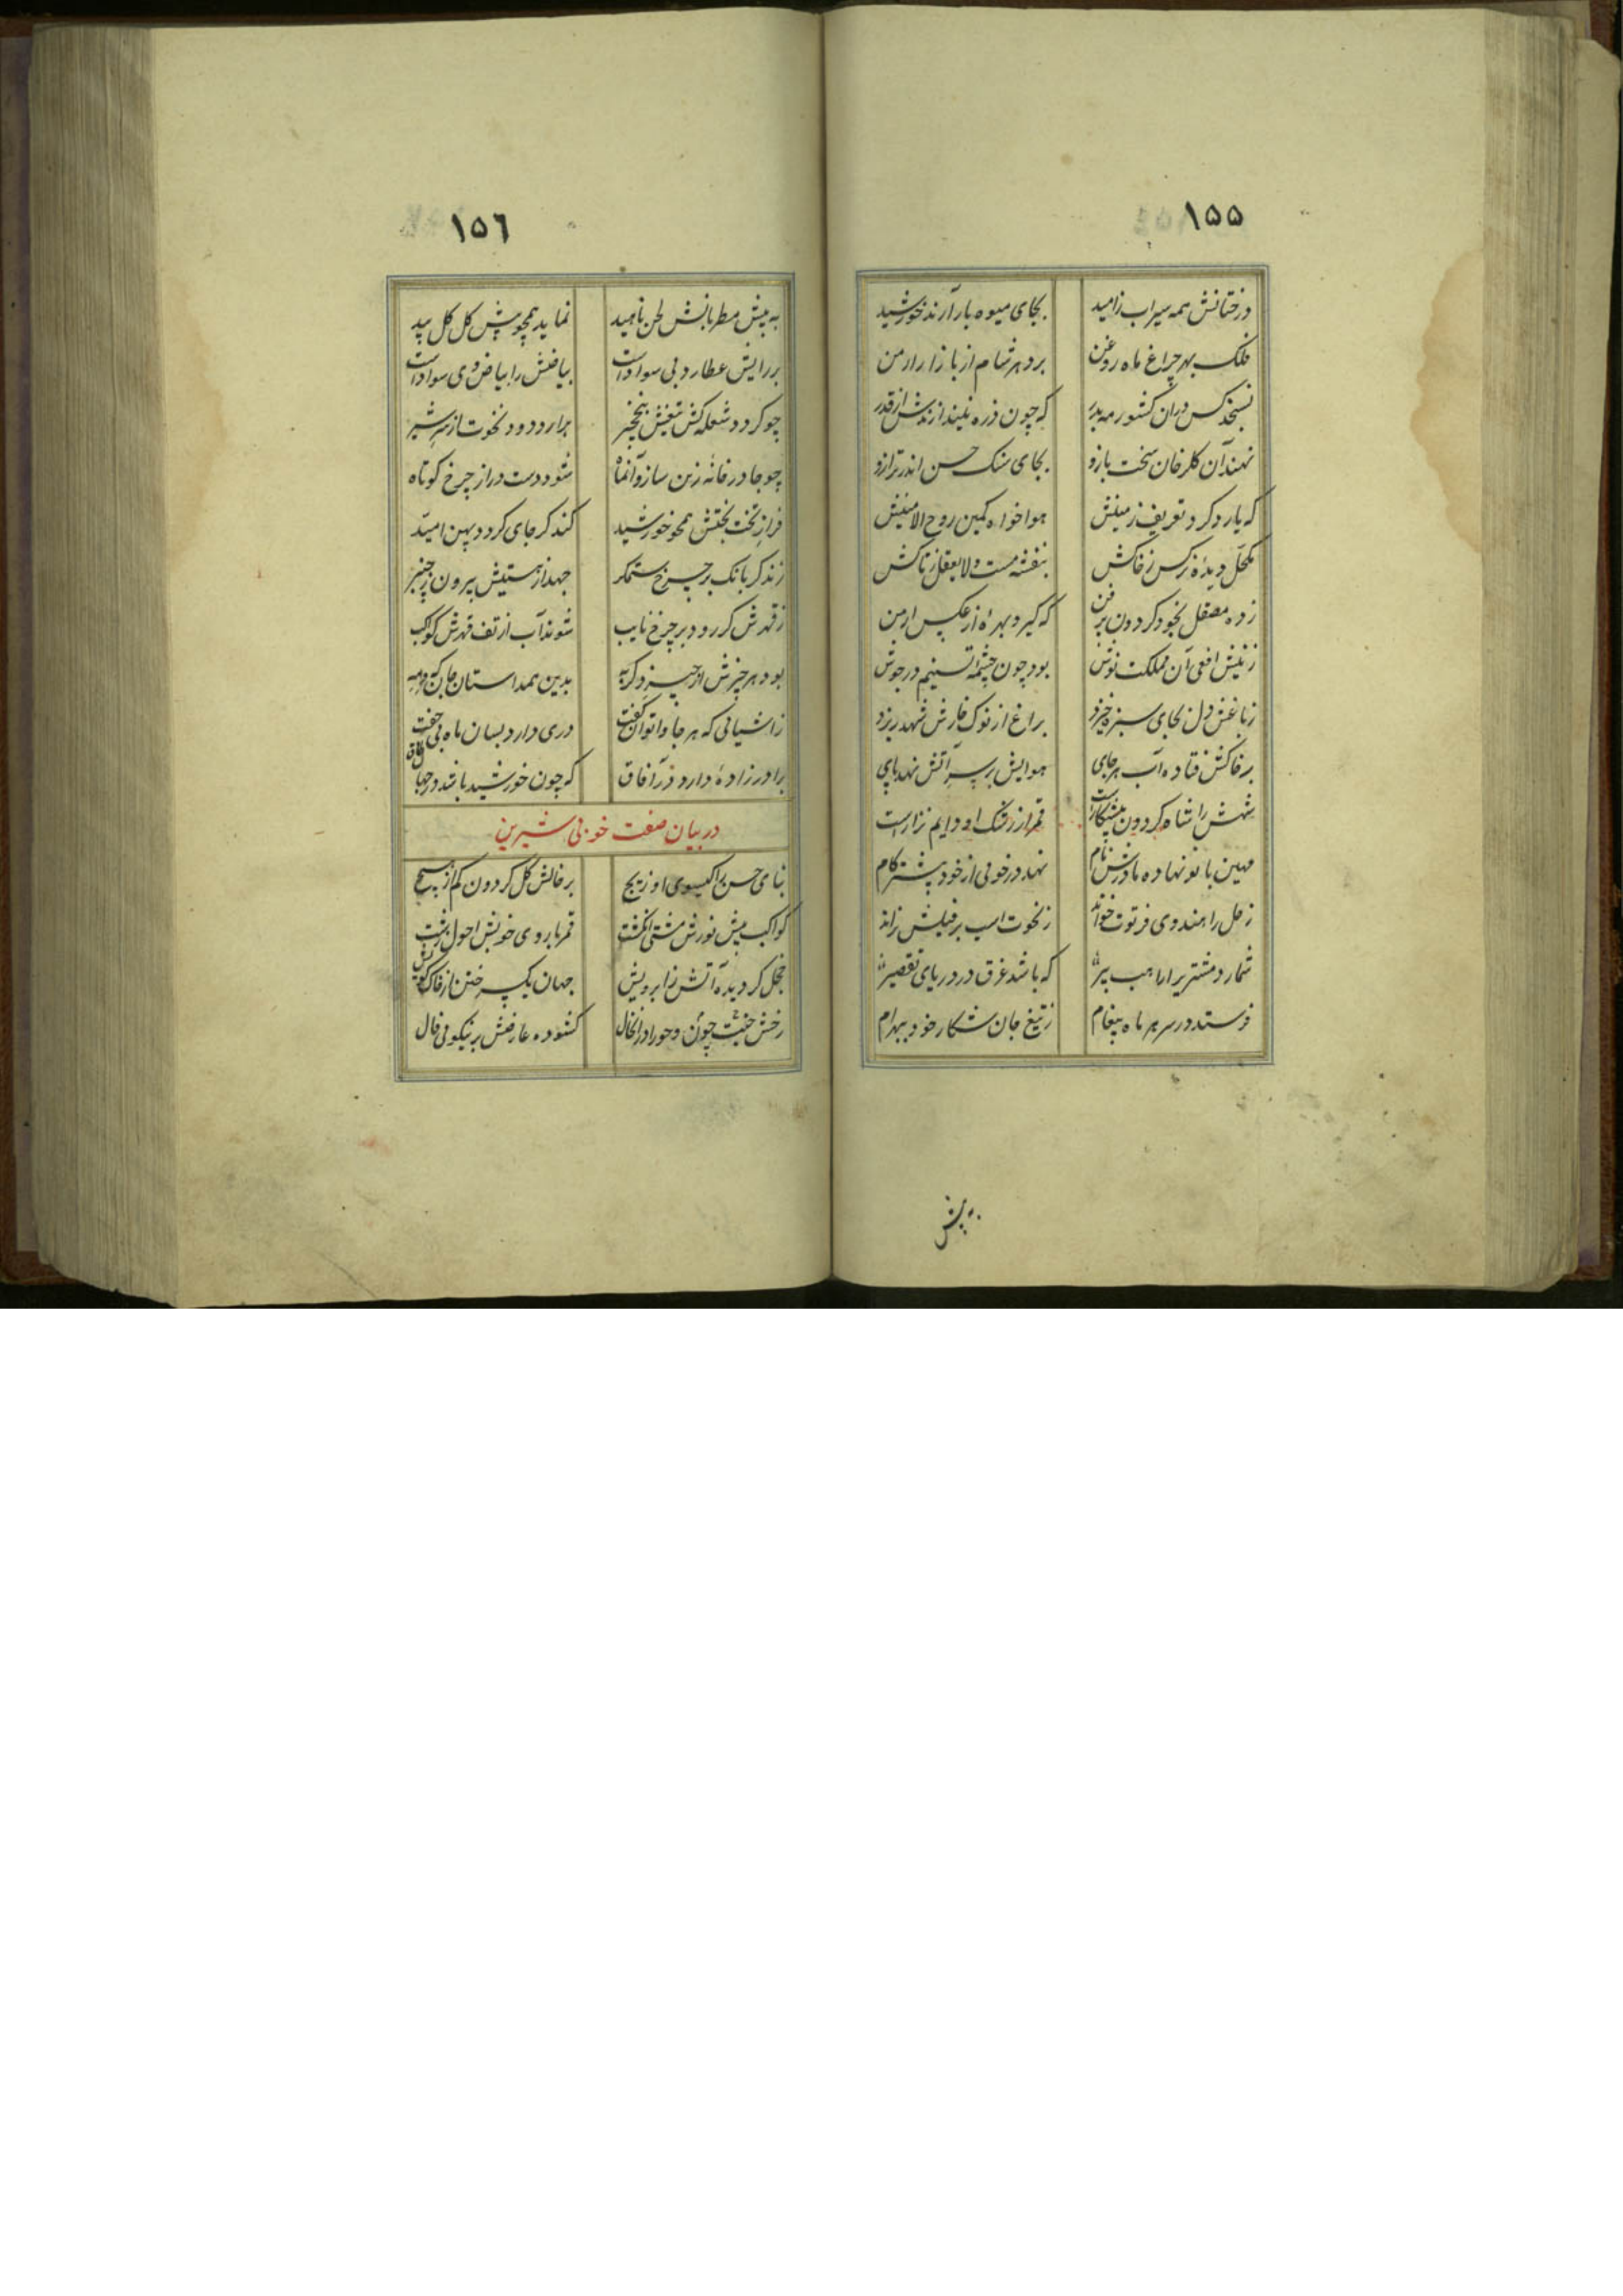 ١٥٥
درختانش همه سیراب زامید بجای میوه بار آرند خورشید
فلک بهر چراغ ماه روغن برد هر شام از بازار ارمن
نسنجد کس دران کشور مه بدر که چون ذره نیندازندش از قدر
نهند آن کلرخان سخت بازو بجای سنک حسن اندر ترازو
که یارد کرد تعریف زمینش هواخواه کمین روح الامینش
مکحل دیدۀ نرکس زخاکش بنفشه مست و لایعقل زتاکش
زده مصقل بخود کردون پرفن که کیرد بهرۀ از عکس ارمن
زنیش افعی آن مملکت نوش بود چون چشمۀ تسنیم در جوش
زباغش دل بجای سبزه خیزد براغ از نوک خارش شهد ریزد
بر خاکش فتاده آب هر جای هوایش بر سر آتش نهد پای
شهش را شاه کردون پیشکارست قمر از رشک او دایم نزارست
مهین بانو نهاده مادرش نام نهد در خوبی از خود پیشتر کام
زحل را هندوی فرتوت خواند زنخوت اسب بر فیلش نراند
شمارد مشتریرا راهب پیر که باشد غرق در دریای تقصیر
فرستد در سر هر ماه پیغام زتیغ جان شکار خود ببهرام
به پیش
١٥٦
به پیش مطربانش لحن ناهید نماید همچو پیش کل کل بید
بر رایش عطارد بی سوادست بیاضش را بیاض وی سوادست
چو کردد شعله کش تیغش بنخچیر برارد دود نخوت از سر شیر
چو جا در خانه زین سازد آنماه شود دست دراز چرخ کوتاه
فراز تخت بختش همچو خورشید کند کر جای کردد پهن امید
زند کر بانک بر چرخ ستمکر جهد از هستیش بیرون چنبر
زقهرش کر رود بر چرخ نایب شوند آب از تف قهرش کواکب
بود هر چیزش از چیز دکر به بدین همداستان جان که و مه
زاشیائی که هر جا واتوان کفت دری دارد بسان ماه بی جفت
برادرزادۀ دارد در آفاق که چون خورشید باشد در جهان طاق
در بیان صفت خوبی شیرین
بنای حسن را کیسوی او زیج بر خالش کل کردون کم از هیچ
کواکب پیش نورش مشتی انکشت قمر با روی خوبش احول زشت
خجل کردیده آتش زابرویش جهان یکسر ختن از خاک کویش
رخش جنت چون و حورا دران خال کشوده عارضش بر نیکوئی فال